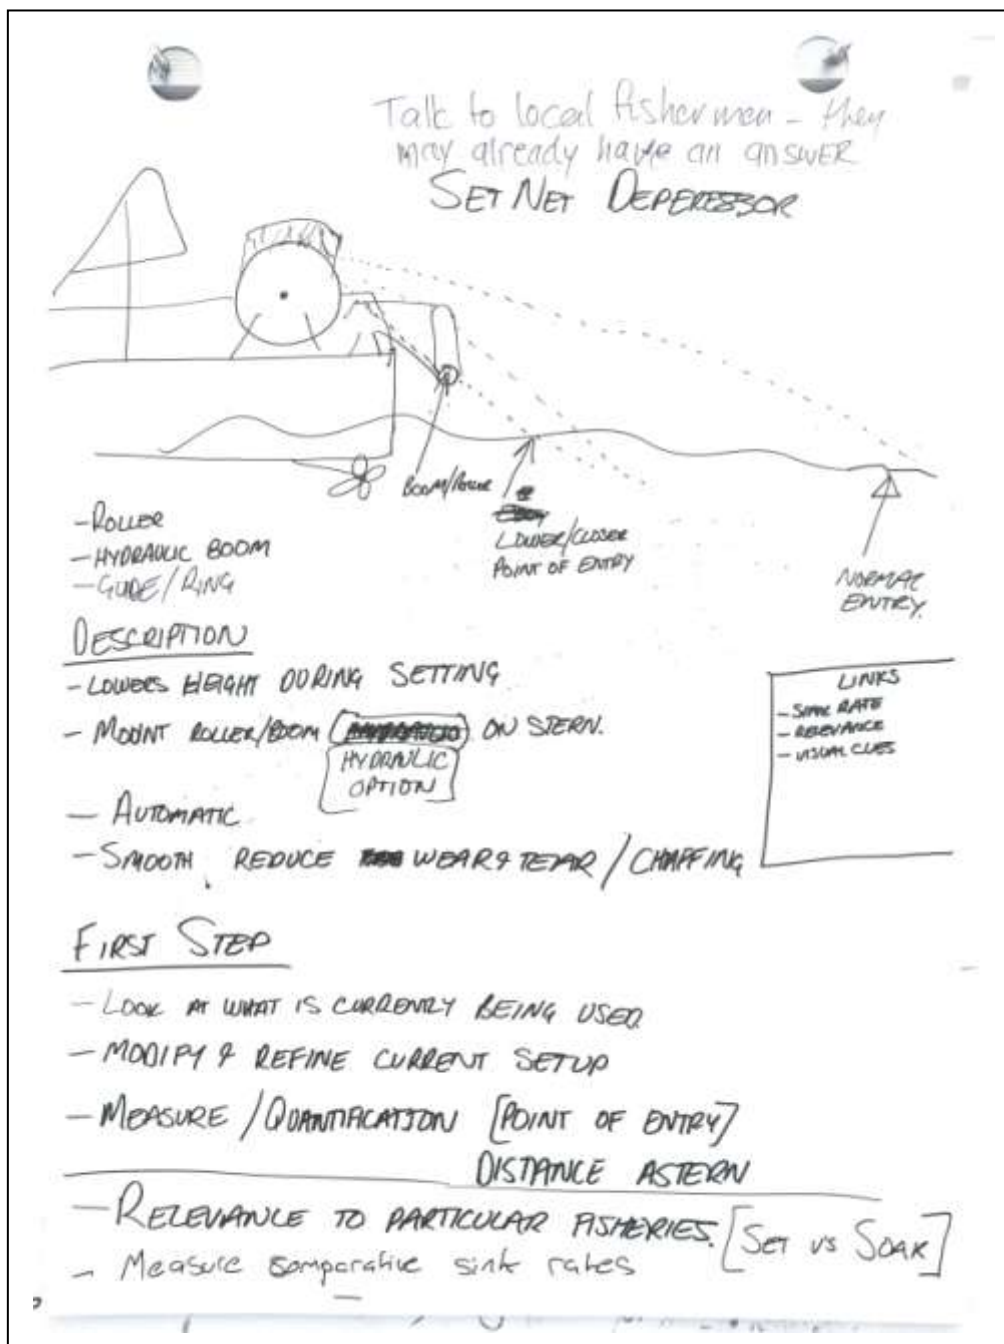 Talk to local fishermen - they
may already have an answer
SET NET DEPERESSOR
BOOM/ROLLER
LOWER/CLOSER
POINT OF ENTRY
NORMAL
ENTRY.
- ROLLER
- HYDRAULIC BOOM
- GUIDE/RING
DESCRIPTION
- LOWERS HEIGHT DURING SETTING
- MOUNT ROLLER/BOOM ON STERN.
HYDRAULIC
OPTION
- AUTOMATIC
- SMOOTH REDUCE WEAR & TEAR / CHAFFING
LINKS
- SINK RATE
- RELEVANCE
- VISUAL CUES
FIRST STEP
- LOOK AT WHAT IS CURRENTLY BEING USED
- MODIFY & REFINE CURRENT SETUP
- MEASURE / QUANTIFICATION [POINT OF ENTRY]
DISTANCE ASTERN
- RELEVANCE TO PARTICULAR FISHERIES. [SET VS SOAK]
- Measure comparative sink rates